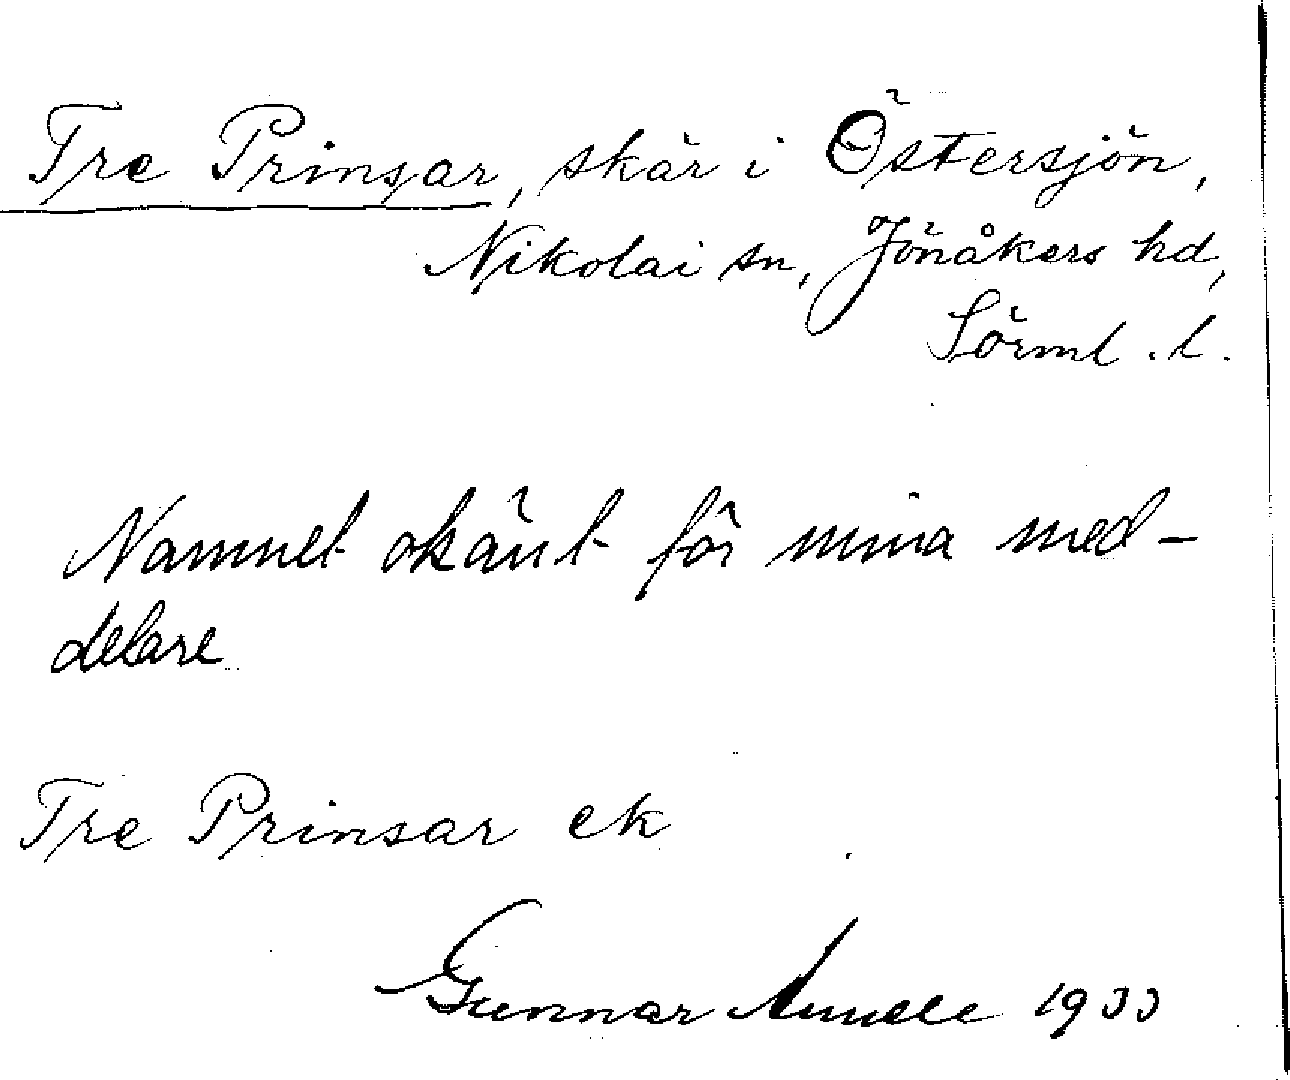 Tre Prinsar, skär i Östersjön,
Nikolai sn, Jönåkers hd,
Sörml. l.
Namnet okänt för mina med-
delare
Tre Prinsar ek
Gunnar 1933